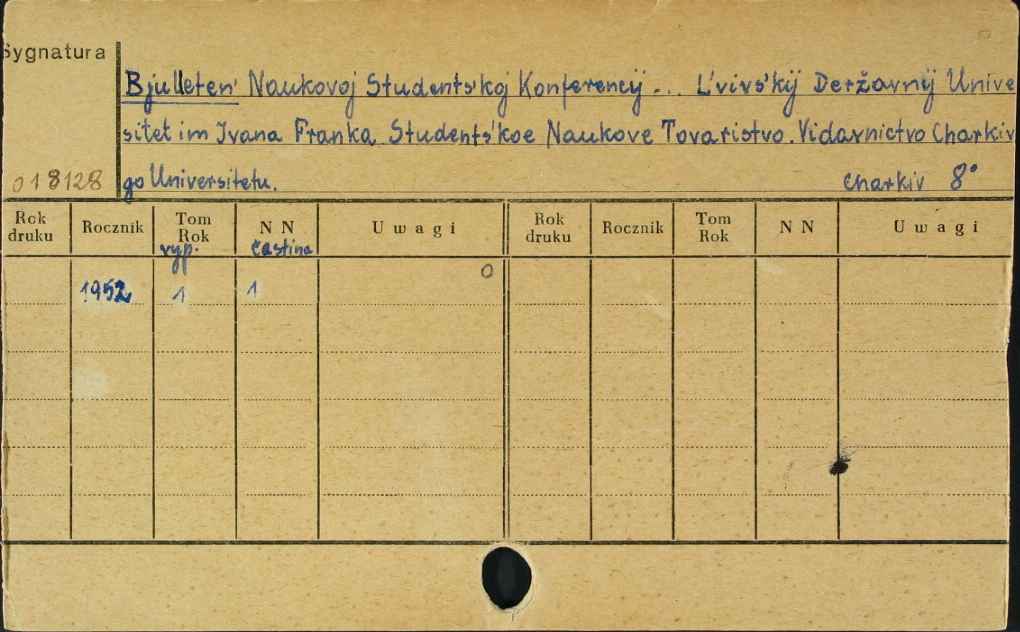 Sygnatura
Bjulleten' Naukovoj Students'koj Konferencij ... L'vivs'kij Deržavnij Unive
sitet im Ivana Franka. Students'koe Naukove Tovaristvo. Vidavnictvo Charkiv
018128 go Universitetu. Charkiv 8°
Rok druku Rocznik Tom Rok N N Uwagi Rok druku Rocznik Tom Rok N N Uwagi
vyp. častina
1952 1 1